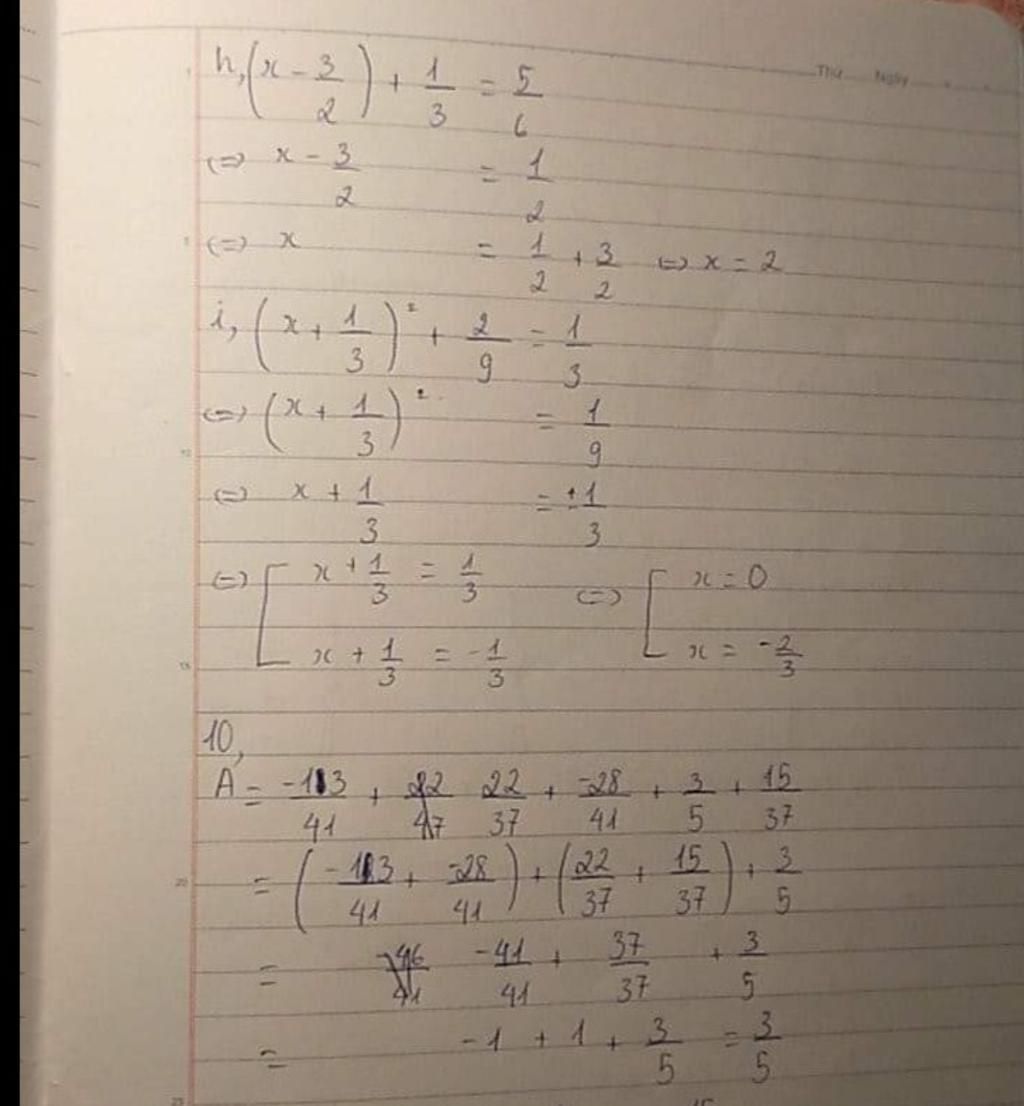 Thứ Ngày
h, (x - 3/2) + 1/3 = 5/6
<=> x - 3/2 = 1/2
<=> x = 1/2 + 3/2 <=> x = 2
i, (x + 1/3)² + 2/9 = 1/3
<=> (x + 1/3)² = 1/9
<=> x + 1/3 = ±1/3
<=> [ x + 1/3 = 1/3 <=> [ x = 0
x + 1/3 = -1/3 x = -2/3
10,
A = -13/41 + 22/37 + -28/41 + 3/5 + 15/37
= (-13/41 + -28/41) + (22/37 + 15/37) + 3/5
= -41/41 + 37/37 + 3/5
= -1 + 1 + 3/5 = 3/5